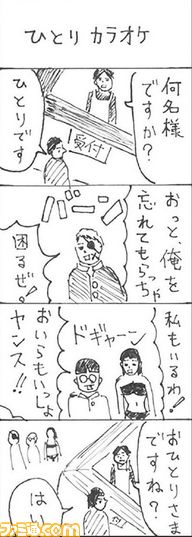 ひとり カラオケ
何名様
ですか?
受付
ひとりです
バーン
おっと、俺を
忘れてもらっちゃ
困るぜ!
私もいるわ!
ドギャーン
おいらもいっしょ
ヤンス!!
おひとりさま
ですね?
はい
ファミ通.com